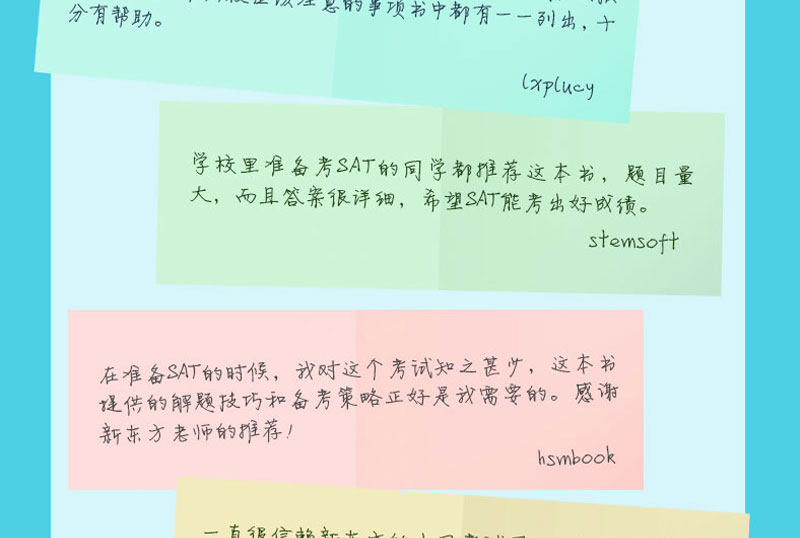 意的事项书中都有一一列出，十
分有帮助。
lxplucy
学校里准备考SAT的同学都推荐这本书，题目量
大，而且答案很详细，希望SAT能考出好成绩。
stemsoft
在准备SAT的时候，我对这个考试知之甚少，这本书
提供的解题技巧和备考策略正好是我需要的。感谢
新东方老师的推荐！
hsmbook
一直很信赖新东方的